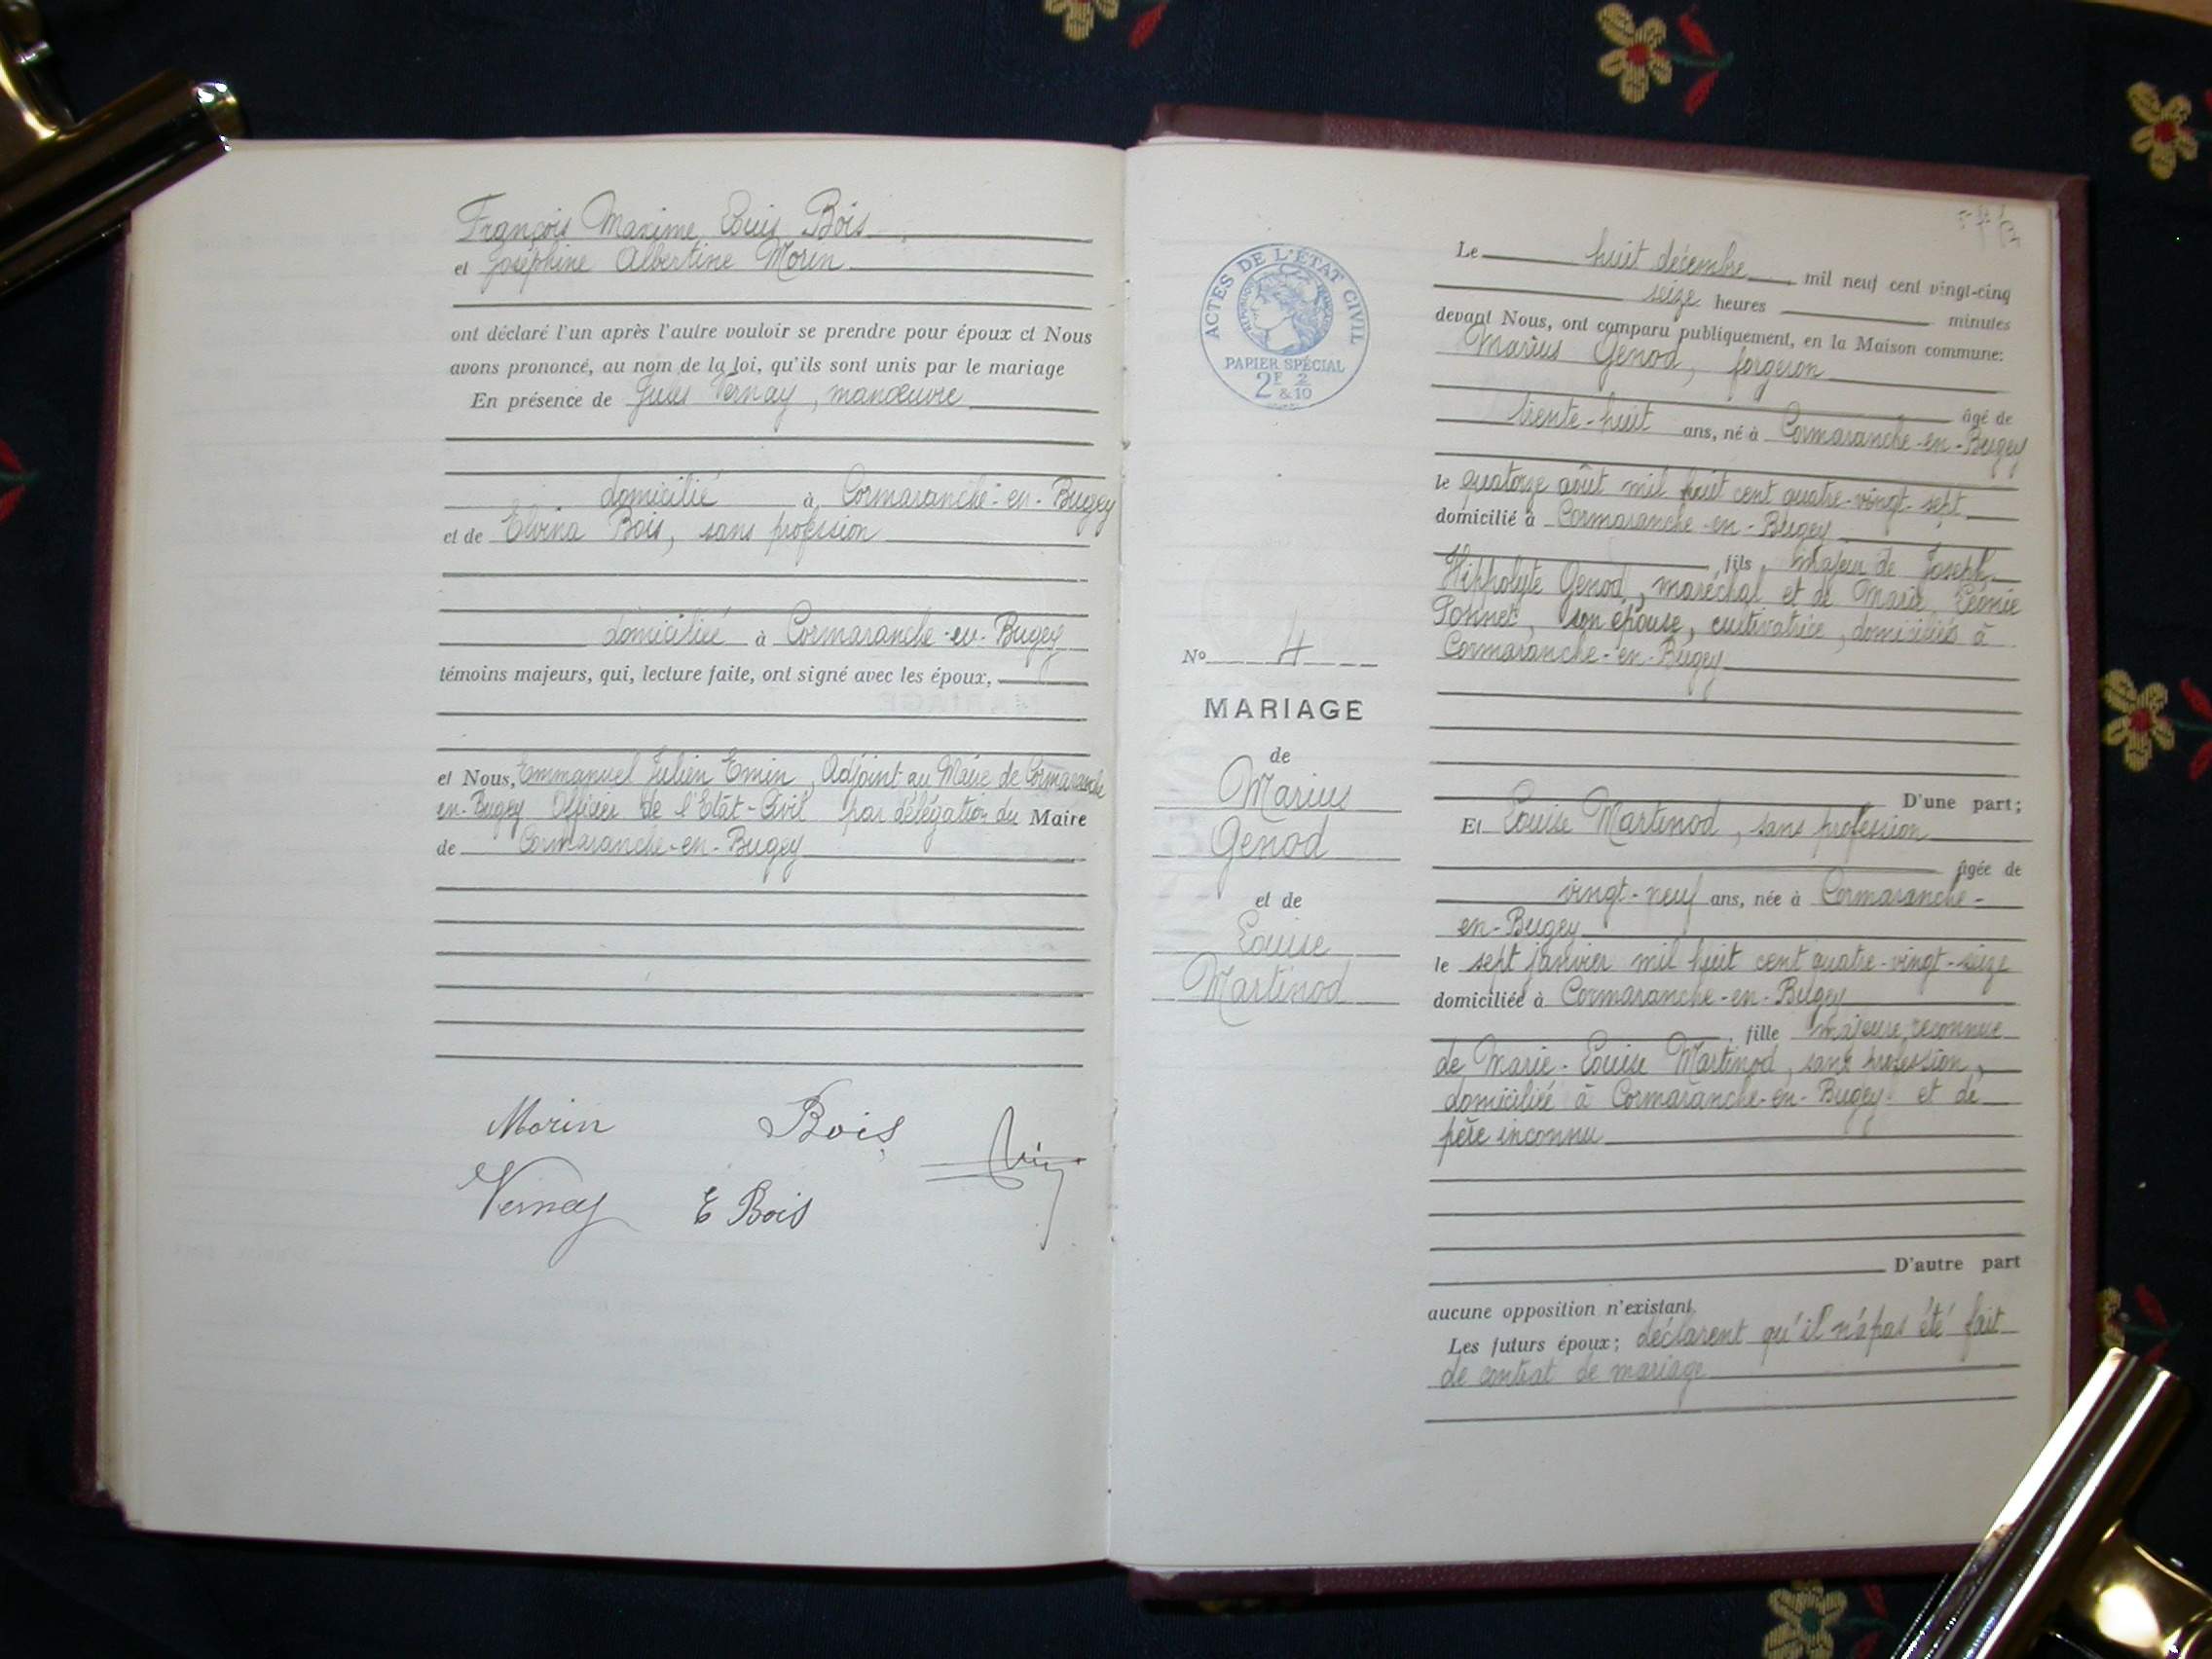 François Maxime Louis Bois
et Joséphine Albertine Morin
ont déclaré l'un après l'autre vouloir se prendre pour époux et Nous
avons prononcé, au nom de la loi, qu'ils sont unis par le mariage
En présence de Jules Vernay, manœuvre
domicilié à Cormaranche-en-Bugey
et de Elvina Bois, sans profession
domiciliée à Cormaranche-en-Bugey
témoins majeurs, qui, lecture faite, ont signé avec les époux,
et Nous, Emmanuel Julien Emin, Adjoint au Maire de Cormaranche
en-Bugey Officier de l'Etat-Civil par délégation du Maire
de Cormaranche-en-Bugey
Morin Bois
Vernay E Bois
ACTES DE L'ÉTAT CIVIL
RÉPUBLIQUE FRANÇAISE
PAPIER SPÉCIAL
2F 2
& 10
No 4
MARIAGE
de
Marius
Genod
et de
Louise
Martinod
Le huit décembre mil neuf cent vingt-cinq
seize heures minutes
devant Nous, ont comparu publiquement, en la Maison commune:
Marius Genod, forgeron
âgé de
trente-huit ans, né à Cormaranche-en-Bugey
le quatorze août mil huit cent quatre-vingt-sept
domicilié à Cormaranche-en-Bugey
, fils majeur de Joseph
Hippolyte Genod, maréchal et de Marie Léonie
son épouse, cultivatrice, domiciliés à
Cormaranche-en-Bugey
D'une part;
Et Louise Martinod, sans profession
âgée de
vingt-neuf ans, née à Cormaranche-
en-Bugey
le sept janvier mil huit cent quatre-vingt-seize
domiciliée à Cormaranche-en-Bugey
, fille majeure, reconnue
de Marie-Louise Martinod, sans profession,
domiciliée à Cormaranche-en-Bugey et de
père inconnu
D'autre part
aucune opposition n'existant.
Les futurs époux; déclarent qu'il n'a pas été fait
de contrat de mariage